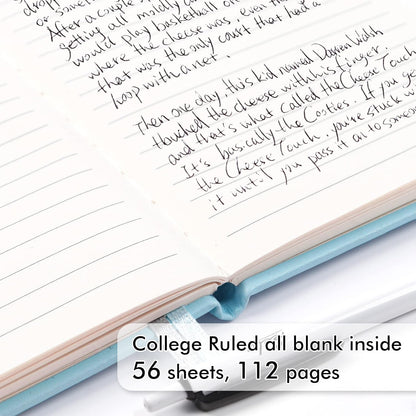 After a couple
getting all mildly
would play basketball on
where the cheese was, even
that was the only court that had a
hoop with a net.
Then one day, this kid named Darren Walsh
touched the cheese with his finger,
and that's what called the Cheese Touch
It's basically the Cooties. If you ge
the Cheese Touch, you're stuck w
it until you pass it on to someo
College Ruled all blank inside
56 sheets, 112 pages